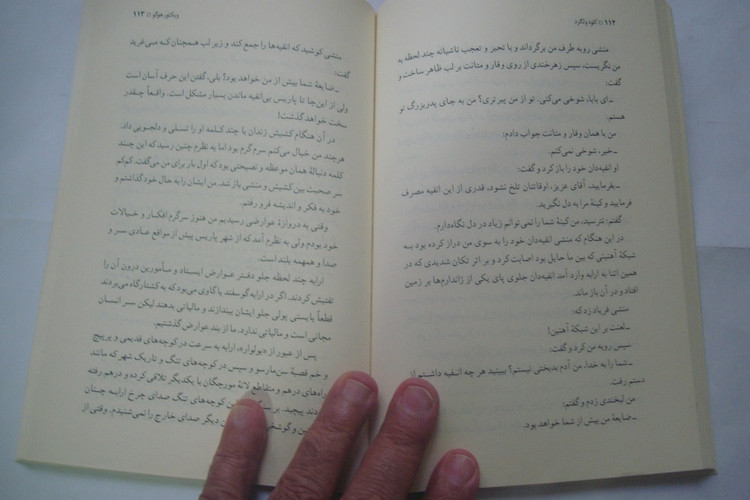 ۱۱۲ □ کلود ولگرد
منشی رو به طرف من برگرداند و با تحیر و تعجب ناشیانه چند لحظه به
من نگریست، سپس زهرخندی از روی وقار و متانت بر لب ظاهر ساخت و
گفت:
ـ ای بابا، شوخی می‌کنی. تو از من پیرتری؟ من به جای پدربزرگ تو
هستم.
من با همان وقار و متانت جواب دادم:
ـ خیر، شوخی نمی‌کنم.
او انفیه‌دان خود را باز کرد و گفت:
ـ بفرمایید. آقای عزیز، اوقاتتان تلخ نشود، قدری از این انفیه مصرف
فرمایید و کینهٔ مرا به دل نگیرید.
گفتم: نترسید، من کینهٔ شما را نمی‌توانم زیاد در دل نگاه‌دارم.
در این هنگام که منشی انفیه‌دان خود را به سوی من دراز کرده بود به
شبکهٔ آهنینی که بین ما حایل بود اصابت کرد و بر اثر تکان شدیدی که در
همین اثنا به ارابه وارد آمد انفیه‌دان جلوی پای یکی از ژاندارم‌ها بر زمین
افتاد و در آن باز ماند.
منشی فریاد زد که:
ـ لعنت بر این شبکهٔ آهنین!
سپس رو به من کرد و گفت:
ـ شما را به خدا، من آدم بدبختی نیستم؟ ببینید هر چه انفیه داشتم از
دستم رفت.
من لبخندی زدم و گفتم:
ـ ضایعهٔ من بیش از شما خواهد بود.
ویکتور هوگو □ ۱۱۳
منشی کوشید که انفیه‌ها را جمع کند و زیر لب همچنان که می‌غرید
گفت:
ـ ضایعهٔ شما بیش از من خواهد بود! بلی، گفتن این حرف آسان است
ولی از این‌جا تا پاریس بی‌انفیه ماندن بسیار مشکل است. واقعاً چقدر
سخت خواهد گذشت!
در آن هنگام کشیش زندان با چند کلمه او را تسلی و دلجویی داد.
هرچند من خیال می‌کنم سرم گرم بود اما به نظرم چنین رسید که این چند
کلمه دنبالهٔ همان موعظه و نصیحتی بود که اول بار برای من می‌گفت. کم‌کم
سر صحبت بین کشیش و منشی باز شد. من ایشان را به حال خود گذاشتم و
خود به فکر و اندیشه فرو رفتم.
وقتی به دروازهٔ عوارضی رسیدیم من هنوز سرگرم افکار و خیالات
خود بودم ولی به نظرم آمد که از شهر پاریس بیش از مواقع عادی سر و
صدا و همهمه بلند است.
ارابه چند لحظه جلو دفتر عوارض ایستاد و مأمورین درون آن را
تفتیش کردند. اگر در ارابه گوسفند یا گاوی می‌بود که به کشتارگاه می‌بردند
قطعاً بایستی پولی جلو ایشان بیندازند و مالیاتی بدهند لیکن سر انسان
مجانی است و مالیاتی ندارد. ما از بند عوارض گذشتیم.
پس از عبور از «بولوار»، ارابه به سرعت در کوچه‌های قدیمی و پرپیچ
و خم قصبهٔ سن‌مارسو و سپس در کوچه‌های تنگ و تاریک شهر که مانند
راه‌های درهم و متقاطع لانهٔ مورچگان با یکدیگر تلاقی کرده و درهم رفته
بودند پیچید. بر کوچه‌های تنگ صدای چرخ ارابه چنان
و گوشخ دیگر صدای خارج را نمی‌شنیدم. وقتی از